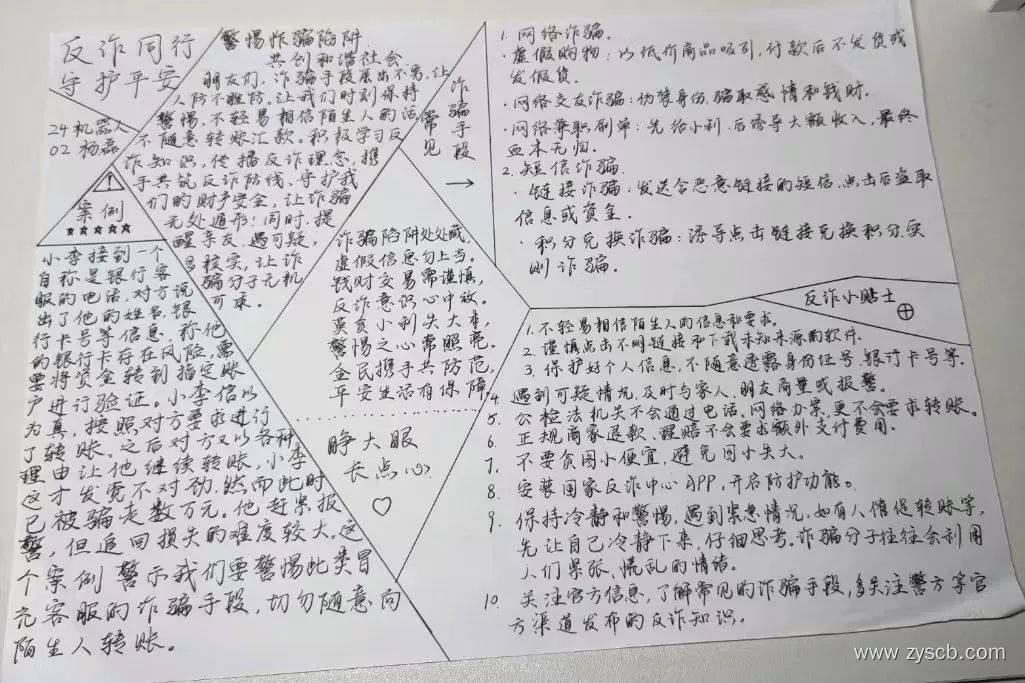 反诈同行
守护平安
24机器人
02 杨磊
警惕诈骗陷阱
共创和谐社会
朋友们，诈骗手段层出不穷，让
人防不胜防。让我们时刻保持
警惕，不轻易相信陌生人的话，
不随意转账汇款。积极学习反
诈知识，传播反诈理念，携
手共筑反诈防线，守护我
们的财产安全，让诈骗
无处遁形！同时，提
醒亲友，遇可疑，
多核实，让诈
骗分子无机
可乘。
常见
诈骗手段
→
案例
★★★★★
小李接到一个
自称是银行客
服的电话，对方说
出了他的姓名、银
行卡号等信息，称他
的银行卡存在风险，需
要将资金转到指定账
户进行验证。小李信以
为真，按照对方要求进行
了转账。之后对方又以各种
理由让他继续转账，小李
这才发觉不对劲，然而此时
已被骗走数万元。他赶紧报
警，但追回损失的难度较大。这
个案例警示我们要警惕此类冒
充客服的诈骗手段，切勿随意向
陌生人转账。
诈骗陷阱处处藏，
虚假信息勿上当。
钱财交易需谨慎，
反诈意识心中放。
莫贪小利失大本，
警惕之心常照亮。
全民携手共防范，
平安生活有保障。
睁大眼
长点心
♡
1. 网络诈骗.
·虚假购物：以低价商品吸引，付款后不发货或
发假货。
·网络交友诈骗：伪装身份，骗取感情和钱财.
·网络兼职刷单：先给小利，后诱导大额收入，最终
血本无归.
2. 短信诈骗.
·链接诈骗：发送含恶意链接的短信，点击后盗取
信息或资金.
·积分兑换诈骗：诱导点击链接兑换积分，实
则诈骗.
反诈小贴士
1. 不轻易相信陌生人的信息和要求.
2. 谨慎点击不明链接和下载未知来源的软件.
3. 保护好个人信息，不随意透露身份证号、银行卡号等.
4. 遇到可疑情况，及时与家人、朋友商量或报警。
5. 公检法机关不会通过电话、网络办案，更不会要求转账。
6. 正规商家退款、理赔不会要求额外支付费用.
7. 不要贪图小便宜，避免因小失大.
8. 安装国家反诈中心APP，开启防护功能。
9. 保持冷静和警惕，遇到紧急情况，如有人催促转账等，
先让自己冷静下来，仔细思考。诈骗分子往往会利用
人们紧张、慌乱的情绪.
10. 关注官方信息，了解常见的诈骗手段，多关注警方等官
方渠道发布的反诈知识。
www.zyscb.com